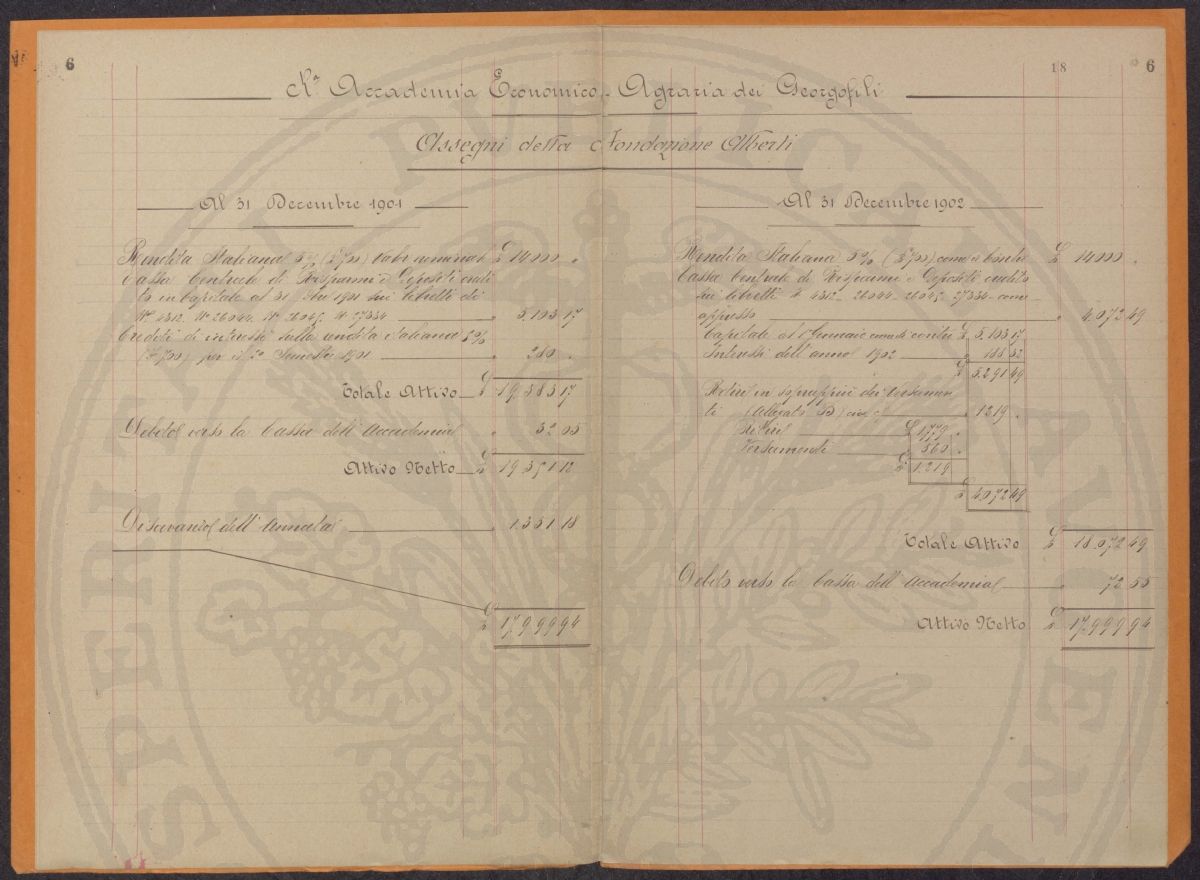 6
18 6
Rª Accademia Economico-Agraria dei Georgofili
Assegni della Fondazione Alberti
Al 31 Decembre 1901
Rendita Italiana 5% (£ 700) valor nominale £ 14000 "
Cassa Centrale di Risparmi e Depositi credi
to in Capitale al 31 1901 sui libretti di
Nº 4312. Nº 26044. Nº 26045. Nº 27334 " 5.103 17
Credito di interessi sulla rendita italiana 5%
(£ 700) per il 2º Semestre 1901 " 280 "
Totale Attivo £ 19.383 17
Debito verso la Cassa dell'Accademia " 32 05
Attivo Netto £ 19.351 12
Disavanzo dell'Annata " 1.351 18
£ 17.999 94
Al 31 Decembre 1902
Rendita Italiana 5% (£ 700) come di contro £ 14000 "
Cassa Centrale di Risparmi e Depositi credito
sui libretti Nº 4312. 26044. 26045. 27334 come
appresso " 4.072 49
Capitale al 1º Gennaio come di contro £ 5.103 17
Interessi dell'anno 1902 " 188 32
£ 5.291 49
Ritiri in soprappiù dei Versamen
ti (Allegato B) cioè " 1219 "
Ritiri £ 1779 "
Versamenti " 560 "
£ 1.219
£ 4.072 49
Totale Attivo £ 18.072 49
Debito verso la Cassa dell'Accademia " 72 55
Attivo Netto £ 17.999 94